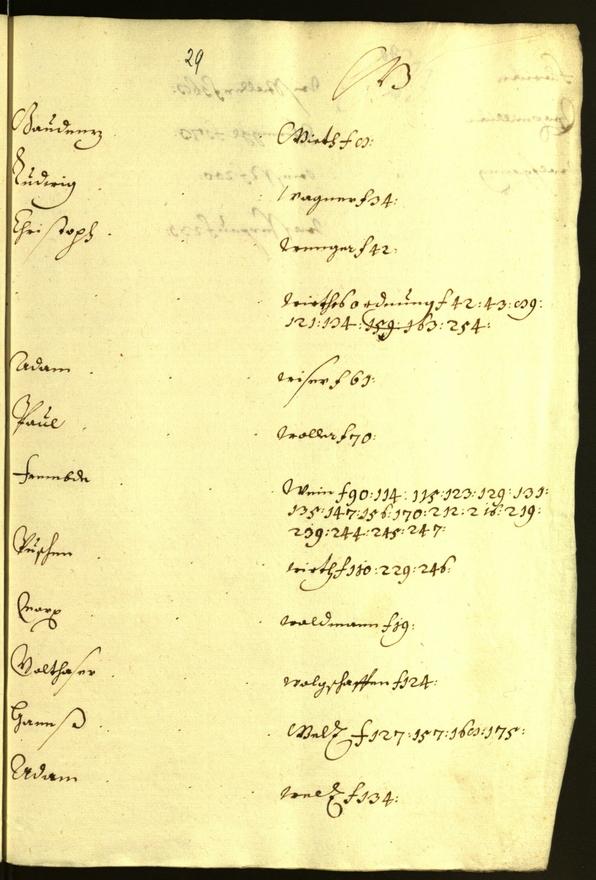 29
W
Gaudenz Wirth f 3:
Ludwig Wagner f 34:
Christoph Wenger f 42:
Wirthsordnung f 42: 43: 39:
121: 134: 159: 163: 254:
Adam Wiser f 61:
Paul Woller f 70:
frembde Wein f 90: 114: 115: 123: 129: 131:
135: 147: 156: 170: 212: 216: 219:
239: 244: 245: 247:
wirth f 110: 229: 246:
Marx Waldmann f 19:
Balthaser Wolgschaffen f 124:
Hannß Welz f 127: 157: 160: 175:
Adam Welz f 134: